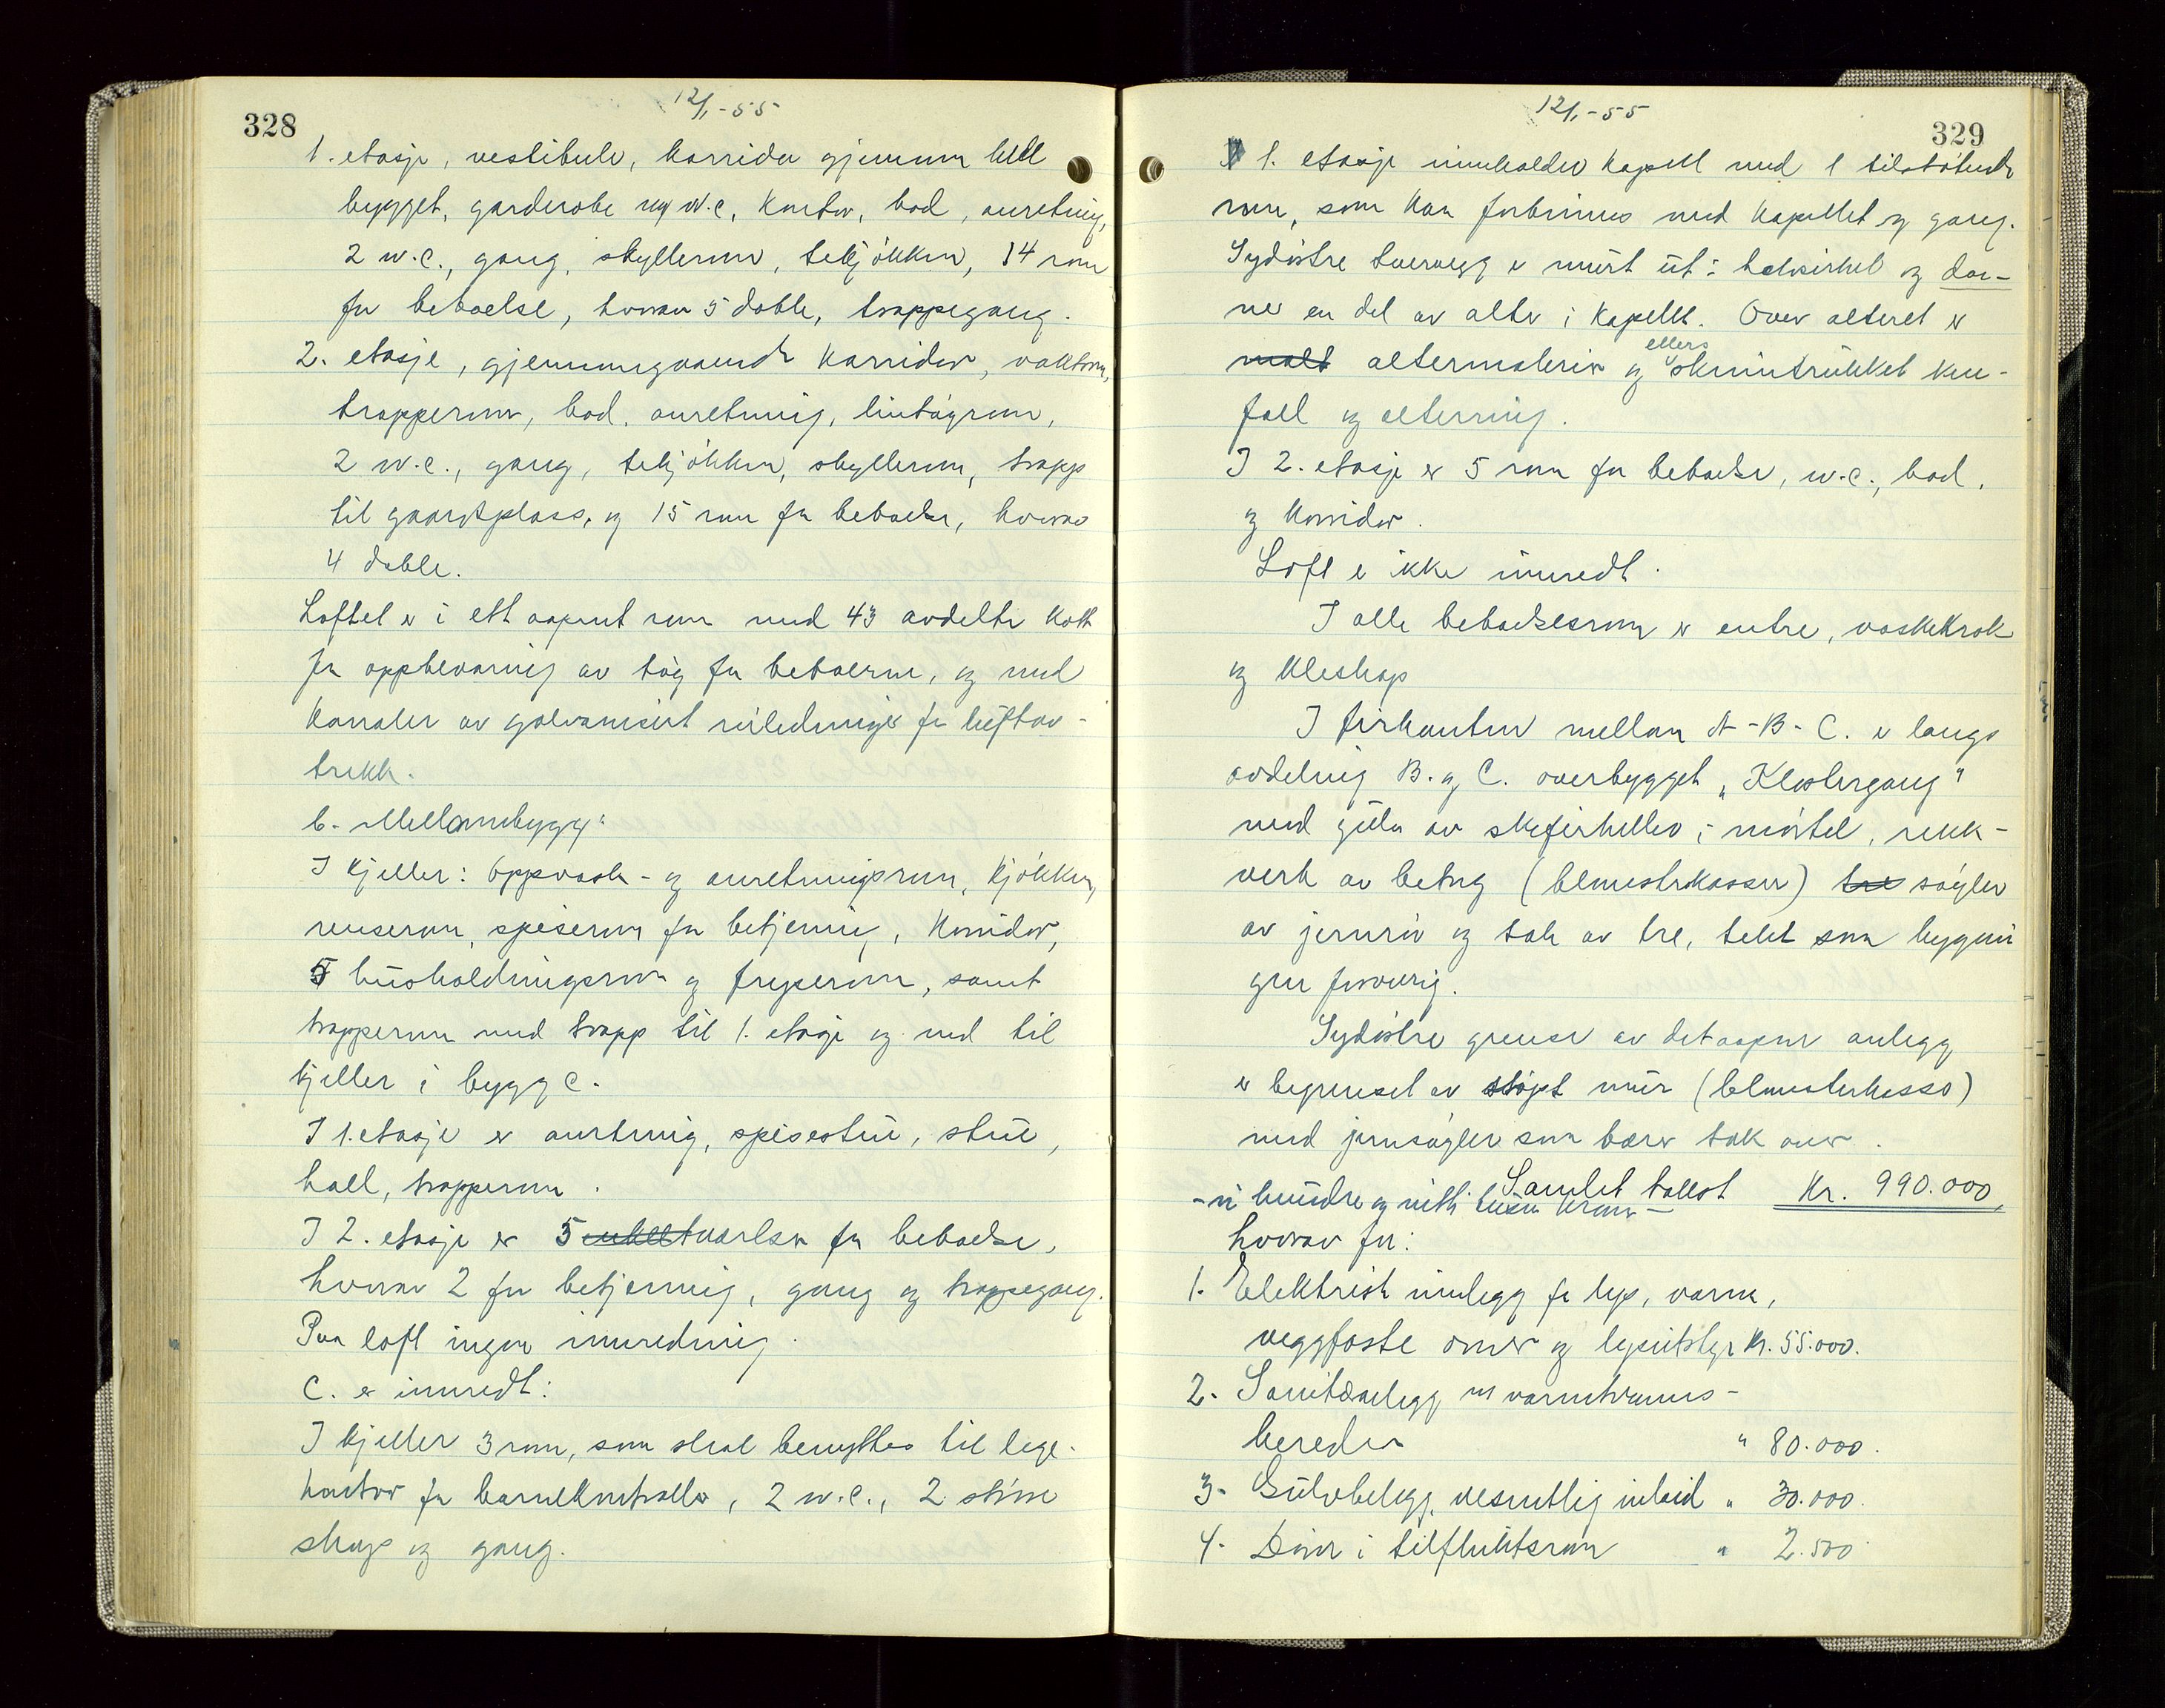 328
12/1-55
1. etasje, vestibule, korridor gjennom hele
bygget, garderobe og w.c, kontor, bad, anretning,
2 w.c., gang, skyllerom, tekjøkken, 14 rom
for beboelse, hvorav 5 doble, trappegang.
2. etasje, gjennemgaaende korridor, vaktrom,
trapperom, bad, anretning, lintøyrom,
2 w.c., gang, tekjøkken, skyllerom, trapp
til gaardsplass, og 15 rom for beboelse, hvorav
4 doble.
Loftet er i ett aapent rom med 43 avdelte kott
for oppbevaring av tøy for beboerne, og med
kanaler av galvanisert rørledninger for luftav-
trekk.
b. Mellombygg:
I kjeller: Oppvask- og anretningsrom, kjøkken,
renserom, spiserom for betjening, korridor,
5 husholdningsrom og fryserom, samt
trapperom med trapp til 1. etasje og ned til
kjeller i bygg C.
I 1. etasje er anretning, spisestue, stue,
hall, trapperom.
I 2. etasje er 5 enkelt værelser for beboelse,
hvorav 2 for betjening, gang og trappegang.
Paa loft ingen innredning.
C. er innredt:
I kjeller 3 rom, som skal benyttes til lege-
kontor for barnekontroller, 2 w.c., 2 større
skap og gang.
12/1-55
329
I 1. etasje inneholder kapell med 1 tilstøtende
rom, som kan forbinnes med kapellet og gang.
Sydøstre tverrvegg er murt ut i halvsirkel og dan-
ner en del av alter i kapellet. Over alteret er
malt altermaleri og ellers skinntrukket kne-
fall og alterring.
I 2. etasje er 5 rom for beboelse, w.c., bad,
og korridor.
Loft er ikke innredt.
I alle beboelsesrom er entre, vaskekrok
og kleskap
I firkanten mellom A-B-C. er langs
avdeling B. og C. overbygget "Klostergang"
med gulv av skiferheller i mørtel, rekk-
verk av betong (blomsterkasser) tre søyler
av jernrør og tak av tre, tekt som bygnin
gen forøvrig.
Sydøstre grense av det aapne anlegg
er begrenset av støpt mur (blomsterkasse)
med jernsøyler som bærer tak over.
Samlet takst Kr. 990.000,
- ni hundre og nitti tusen kroner -
hvorav for:
1. Elektrisk innlegg for lys, varme,
veggfaste ovner og lysutstyr kr. 55.000.
2. Sanitæranlegg m varmtvanns-
bereder " 80.000.
3. Gulvbelegg, vesentlig inlaid " 30.000.
4. Dører i tilfluktsrom " 2.500